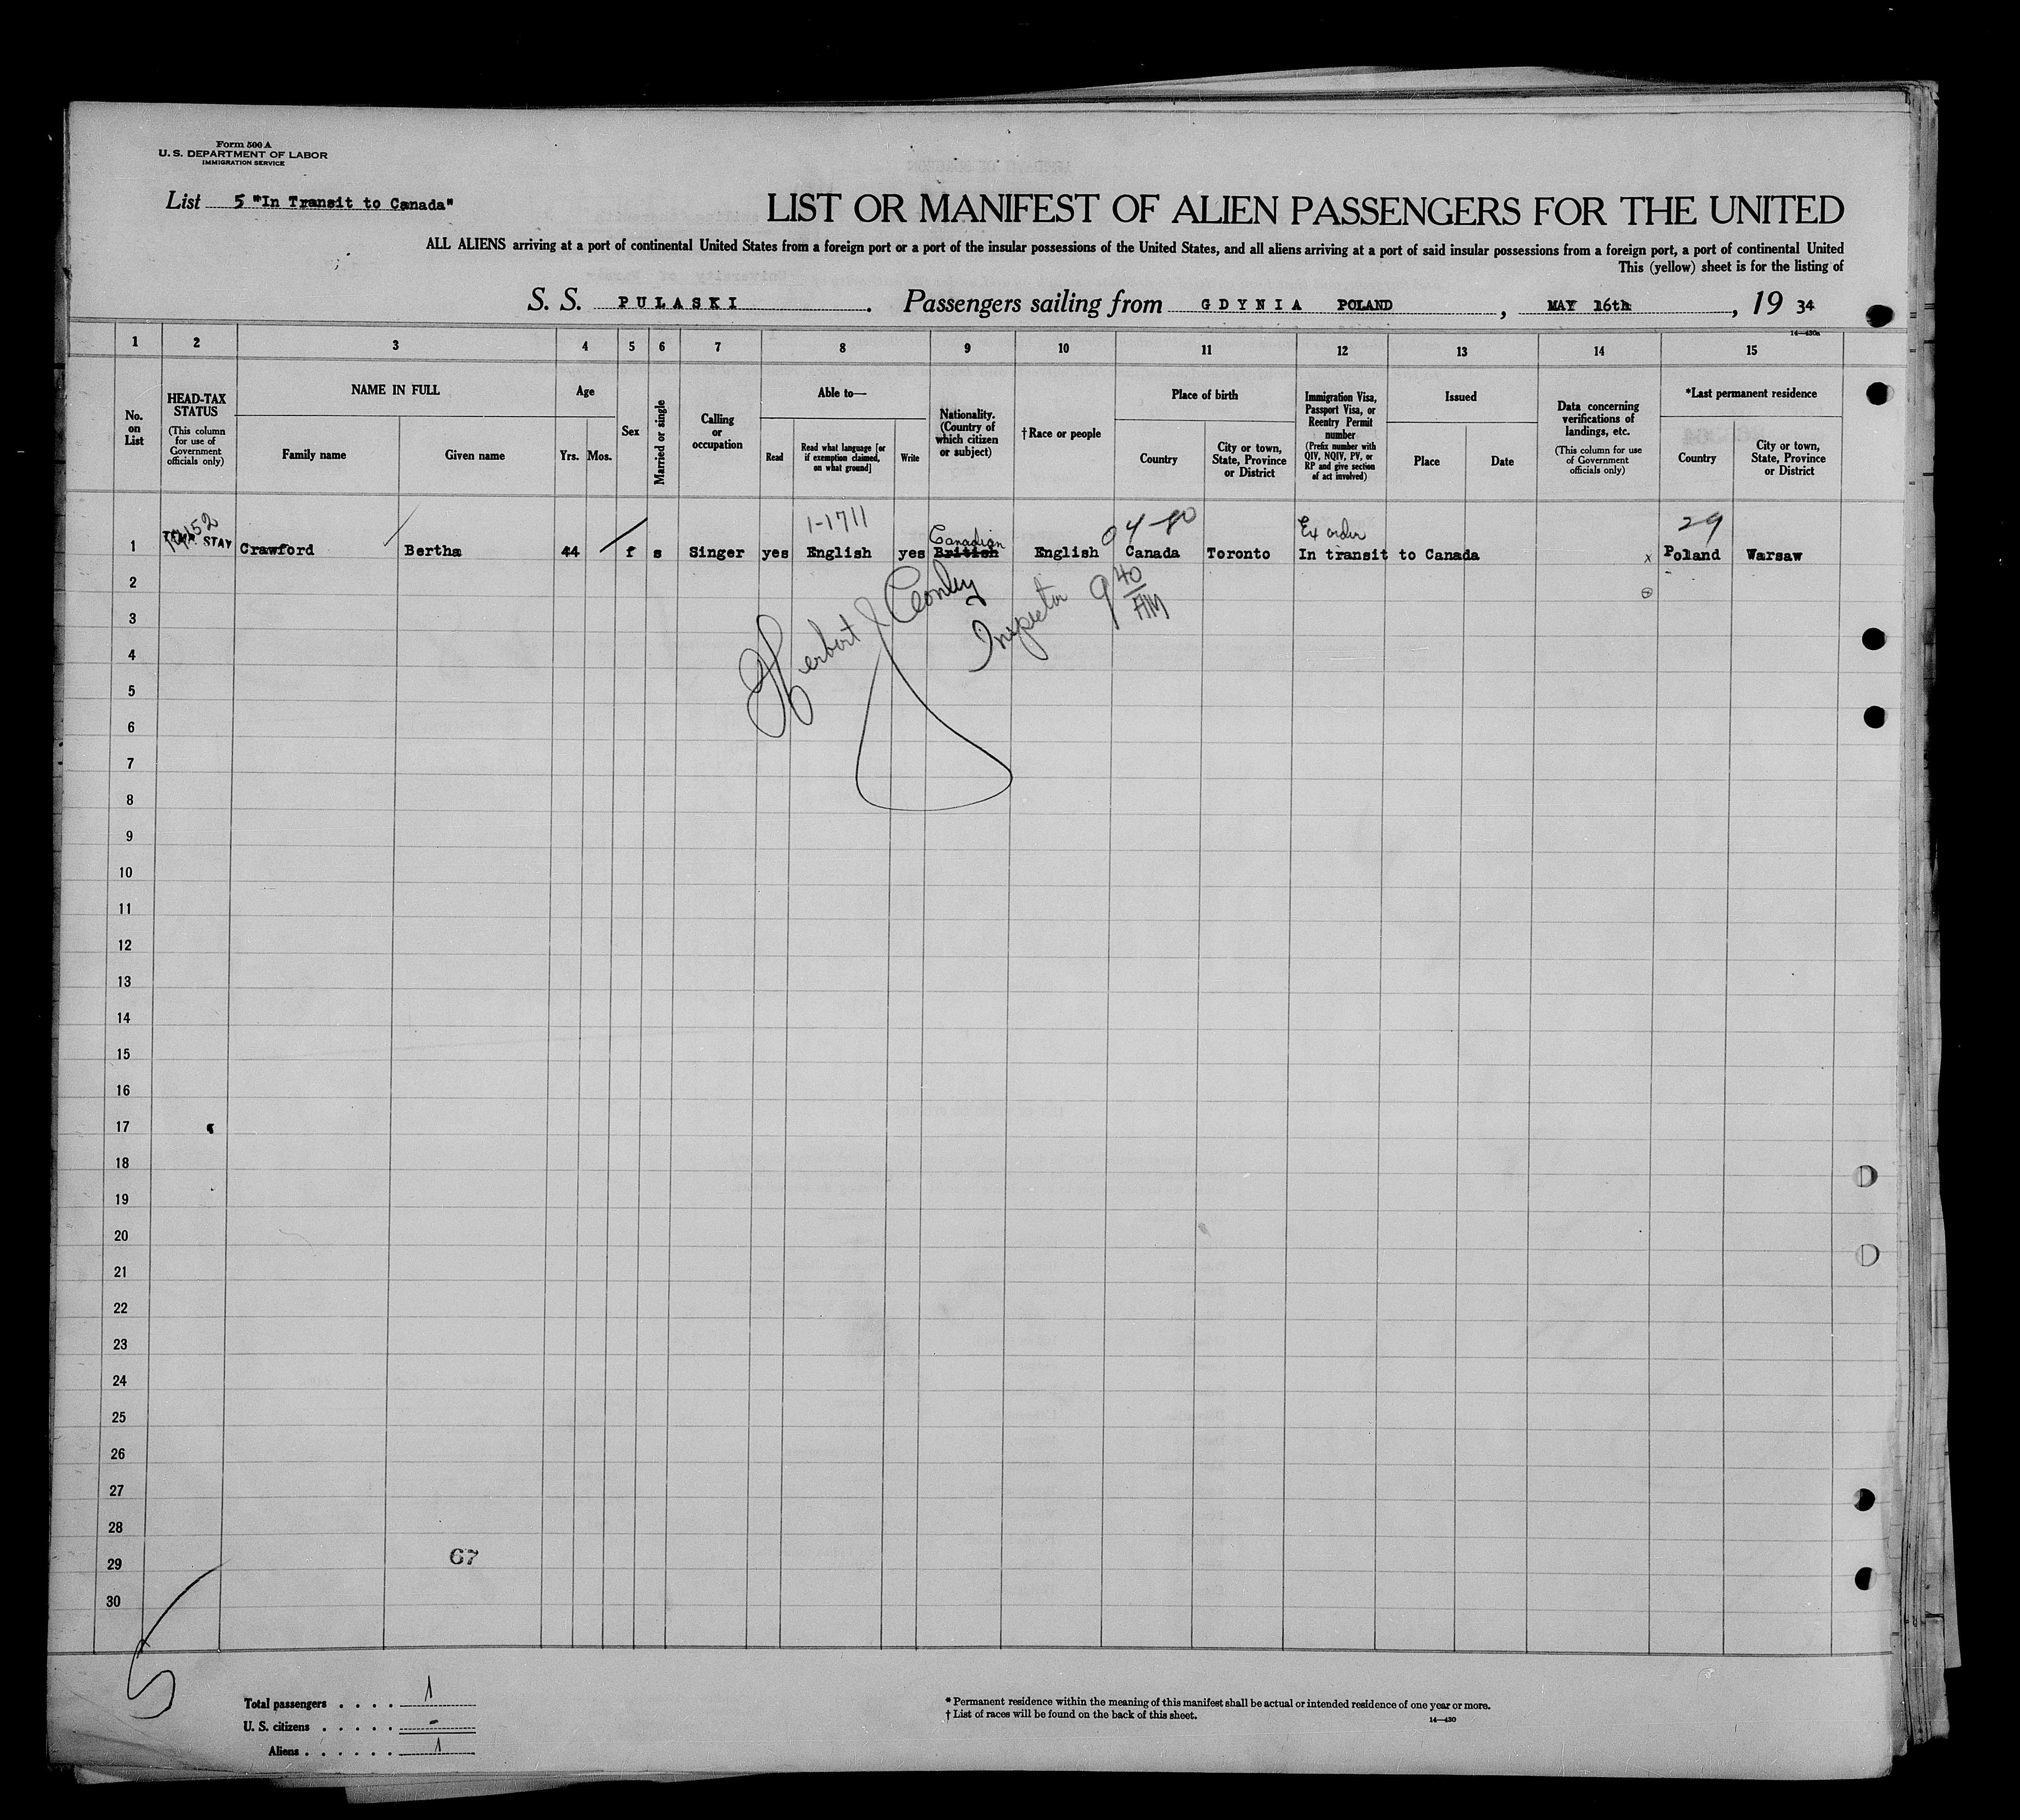 Form 500 A
U. S. DEPARTMENT OF LABOR
IMMIGRATION SERVICE
List 5 "In Transit to Canada"
LIST OR MANIFEST OF ALIEN PASSENGERS FOR THE UNITED
ALL ALIENS arriving at a port of continental United States from a foreign port or a port of the insular possessions of the United States, and all aliens arriving at a port of said insular possessions from a foreign port, a port of continental United
This (yellow) sheet is for the listing of
S. S. PULASKI. Passengers sailing from GDYNIA POLAND, MAY 16th, 19 34
14—430a
1 2 3 4 5 6 7 8 9 10 11 12 13 14 15
No. on List
HEAD-TAX STATUS
(This column for use of Government officials only)
NAME IN FULL
Family name
Given name
Age
Yrs. Mos.
Sex
Married or single
Calling or occupation
Able to—
Read
Read what language [or if exemption claimed, on what ground]
Write
Nationality. (Country of which citizen or subject)
†Race or people
Place of birth
Country
City or town, State, Province or District
Immigration Visa, Passport Visa, or Reentry Permit number
(Prefix number with QIV, NQIV, PV, or RP and give section of act involved)
Issued
Place
Date
Data concerning verifications of landings, etc.
(This column for use of Government officials only)
*Last permanent residence
Country
City or town, State, Province or District
1-1711
Canadian
04-80
Ex order
29
1 TEMP. STAY Crawford Bertha 44 f s Singer yes English yes British English Canada Toronto In transit to Canada x Poland Warsaw
2
3
4
5
6
7
8
9
10
11
12
13
14
15
16
17
18
19
20
21
22
23
24
25
26
27
28
29
30
Herbert J Conley
Inspector 9 40 AM
67
5
Total passengers . . . . 1
U. S. citizens . . . . . -
Aliens . . . . . . 1
* Permanent residence within the meaning of this manifest shall be actual or intended residence of one year or more.
† List of races will be found on the back of this sheet.
14—430